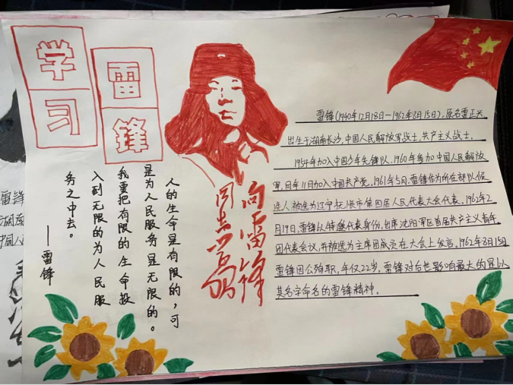 学习
雷锋
人的生命是有限的，可
是为人民服务是无限的。
我要把有限的生命投
入到无限的为人民服
务之中去。
——雷锋
向雷锋
同志学习
雷锋(1940年12月18日—1962年8月15日),原名雷正兴
出生于湖南长沙,中国人民解放军战士,共产主义战士。
1954年加入中国少年先锋队,1960年参加中国人民解放
军,同年11月加入中国共产党。1961年5月,雷锋作为所在部队候
选人,被选为抚顺市第四届人民代表大会代表,1962年2
月19日,雷锋以特邀代表身份,出席沈阳军区首届共产主义青年
团代表会议,并被选为主席团成员在大会上发言。1962年8月15日
雷锋因公殉职,年仅22岁。雷锋对后世影响最大的是以
其名字命名的雷锋精神.